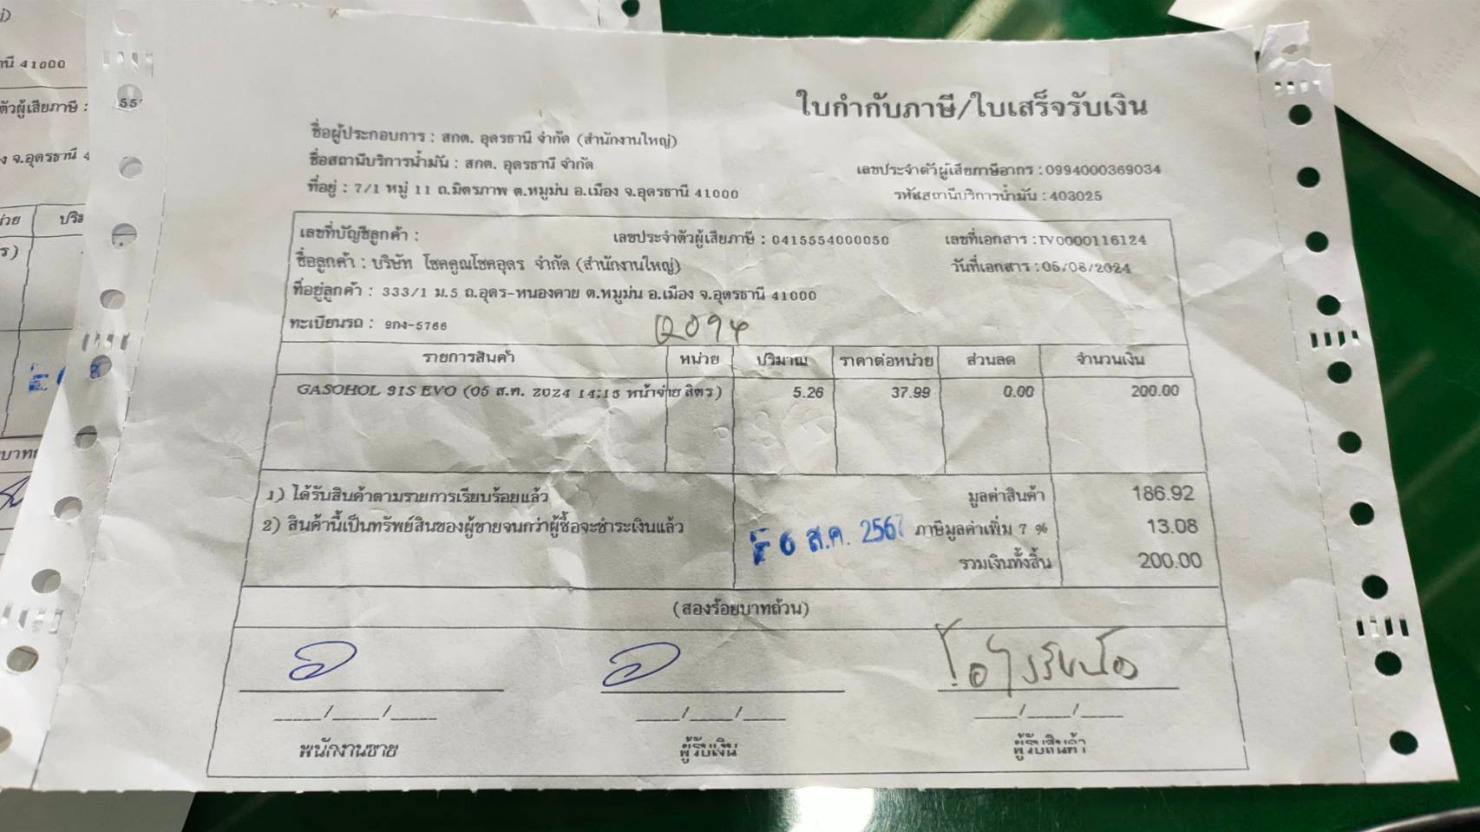 นี 41000
ตัวผู้เสียภาษี : 55
ง จ.อุดรธานี 4
ใบกำกับภาษี/ใบเสร็จรับเงิน
ชื่อผู้ประกอบการ : สกต. อุดรธานี จำกัด (สำนักงานใหญ่)
ชื่อสถานีบริการน้ำมัน : สกต. อุดรธานี จำกัด
เลขประจำตัวผู้เสียภาษีอากร : 0994000369034
ที่อยู่ : 7/1 หมู่ 11 ถ.มิตรภาพ ต.หมูม่น อ.เมือง จ.อุดรธานี 41000
รหัสสถานีบริการน้ำมัน : 403025
เลขที่บัญชีลูกค้า : เลขประจำตัวผู้เสียภาษี : 0415554000050 เลขที่เอกสาร : IV0000116124
ชื่อลูกค้า : บริษัท โชคคูณโชคอุดร จำกัด (สำนักงานใหญ่) วันที่เอกสาร : 05/08/2024
ที่อยู่ลูกค้า : 333/1 ม.5 ถ.อุดร-หนองคาย ต.หมูม่น อ.เมือง จ.อุดรธานี 41000
ทะเบียนรถ : -5766
รายการสินค้า หน่วย ปริมาณ ราคาต่อหน่วย ส่วนลด จำนวนเงิน
GASOHOL 91S EVO (05 ส.ค. 2024 14:15 หน้าจ่าย ลิตร) 5.26 37.99 0.00 200.00
1) ได้รับสินค้าตามรายการเรียบร้อยแล้ว มูลค่าสินค้า 186.92
2) สินค้านี้เป็นทรัพย์สินของผู้ขายจนกว่าผู้ซื้อจะชำระเงินแล้ว ภาษีมูลค่าเพิ่ม 7 % 13.08
6 ส.ค. 2567
รวมเงินทั้งสิ้น 200.00
(สองร้อยบาทถ้วน)
____/____/____ ____/____/____ ____/____/____
พนักงานขาย ผู้รับเงิน ผู้รับสินค้า